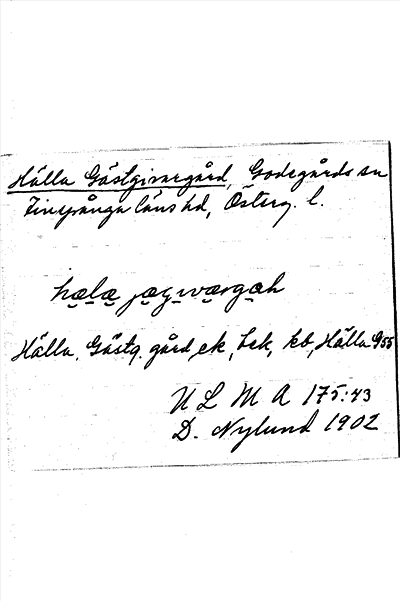 Hälla Gästgivaregård, Godegårds sn
Finspånga läns hd, Österg. l.
Hälla, Gästg. gård, ek, bek, kb, Hälla G55
U L M A 175:43
D. Nylund 1902